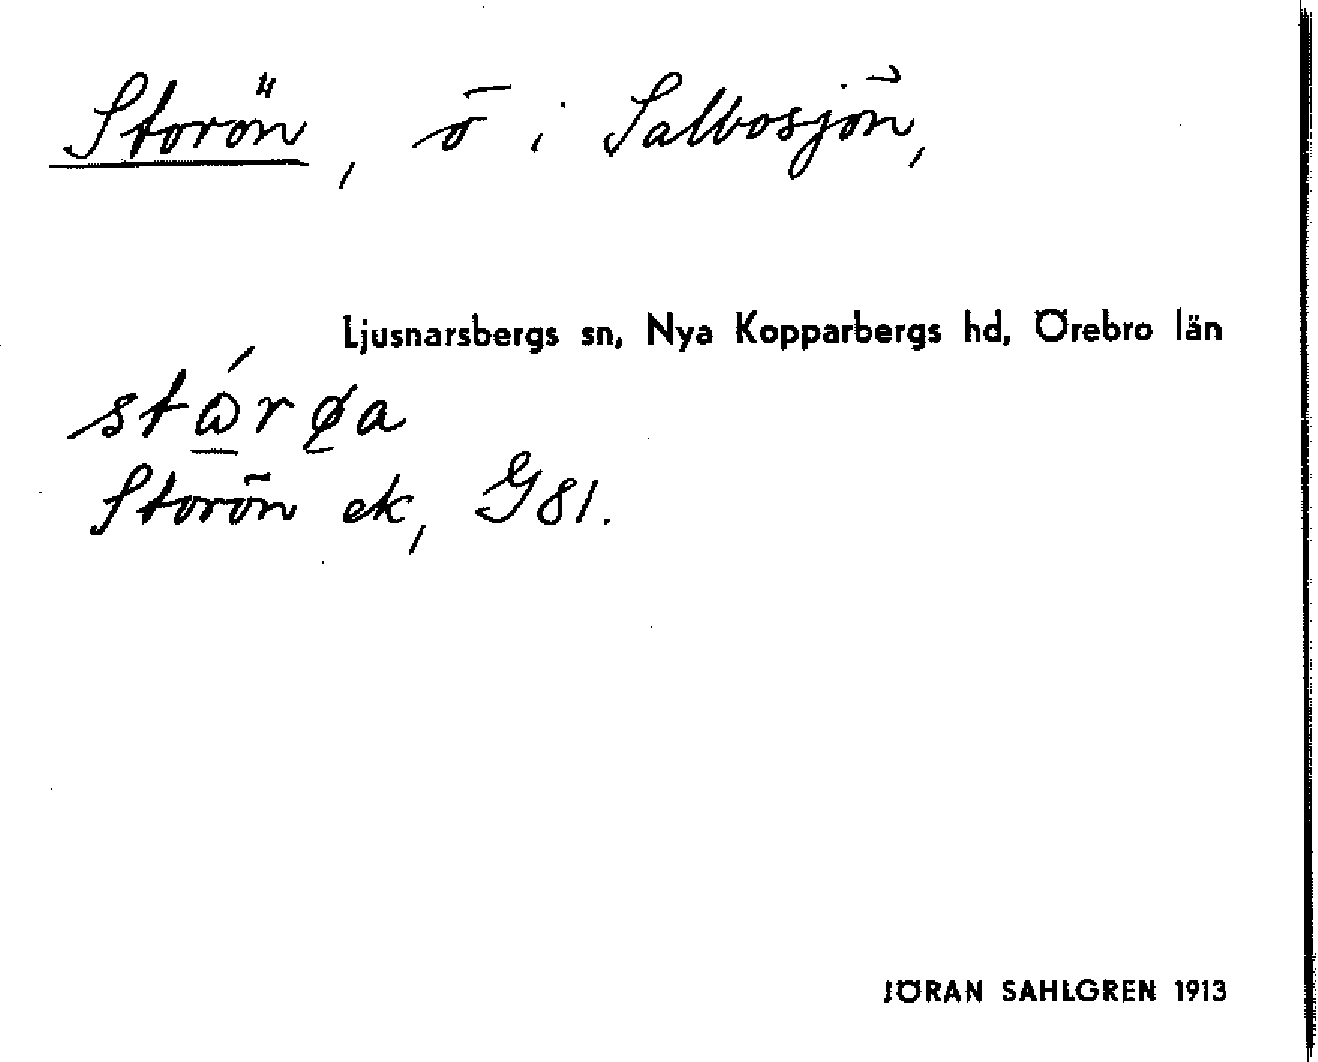 Storön, ö i Salbosjön,
Ljusnarsbergs sn, Nya Kopparbergs hd, Örebro län
stώ̲rø̲a
Storön ek, G81.
JÖRAN SAHLGREN 1913